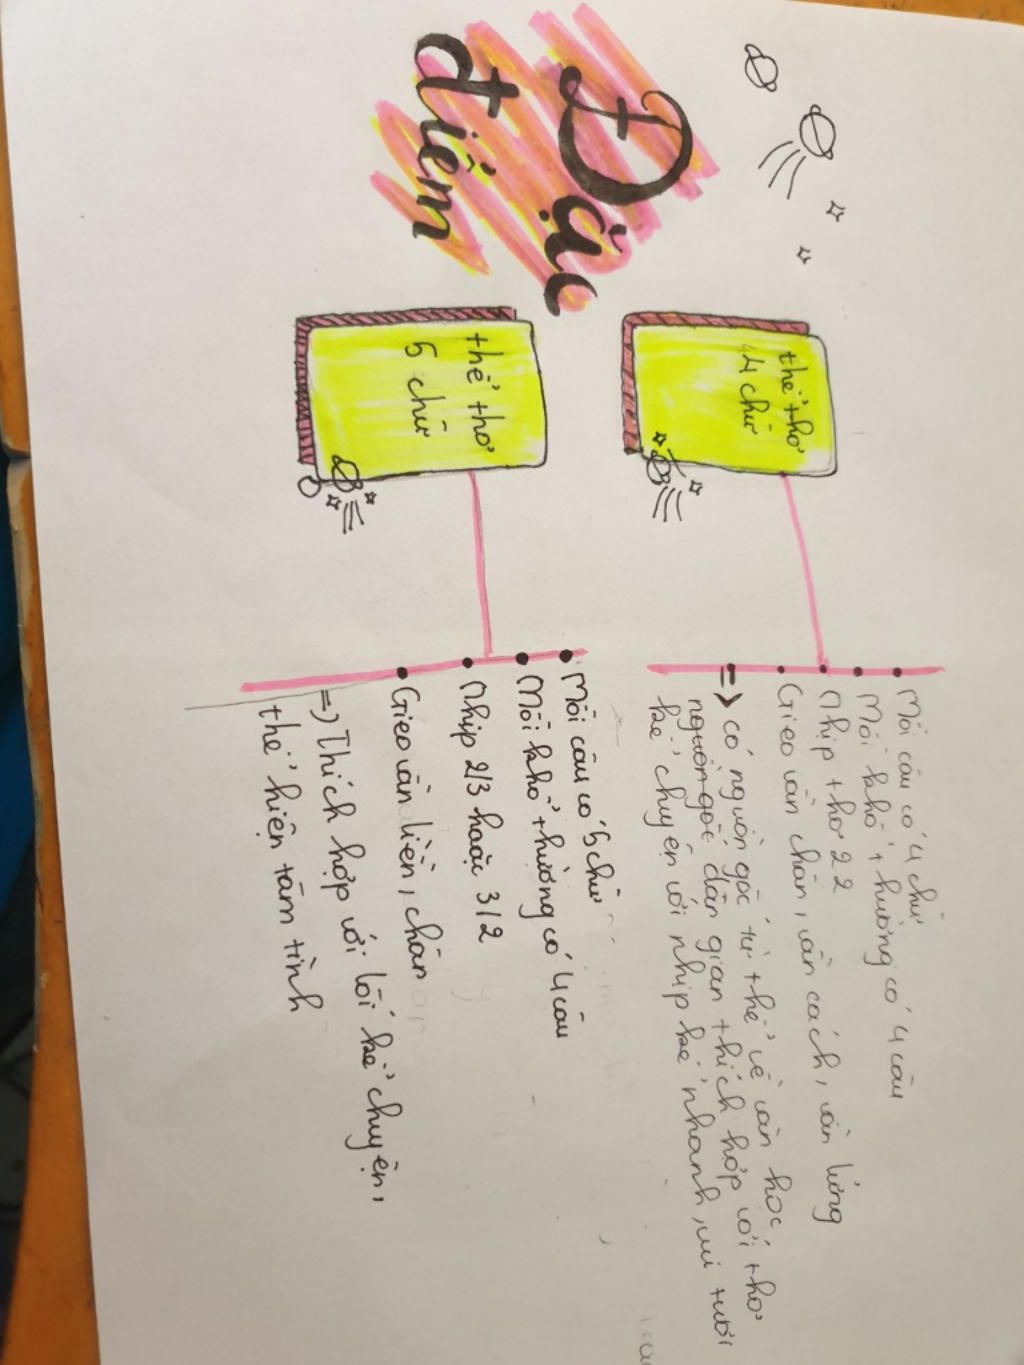 Đặc
điểm
thể thơ
4 chữ
Mỗi câu có 4 chữ
Mỗi khổ thường có 4 câu
Nhịp thơ 2 2
Gieo vần chân, vần cách, vần lưng
=> có nguồn gốc từ thể vè văn học,
nguồn gốc dân gian thích hợp với thơ
kể chuyện với nhịp kể nhanh, vui tươi
thể thơ
5 chữ
Mỗi câu có 5 chữ
Mỗi khổ thường có 4 câu
Nhịp 2/3 hoặc 3/2
Gieo vần liền, chân
=> Thích hợp với lối kể chuyện,
thể hiện tâm tình